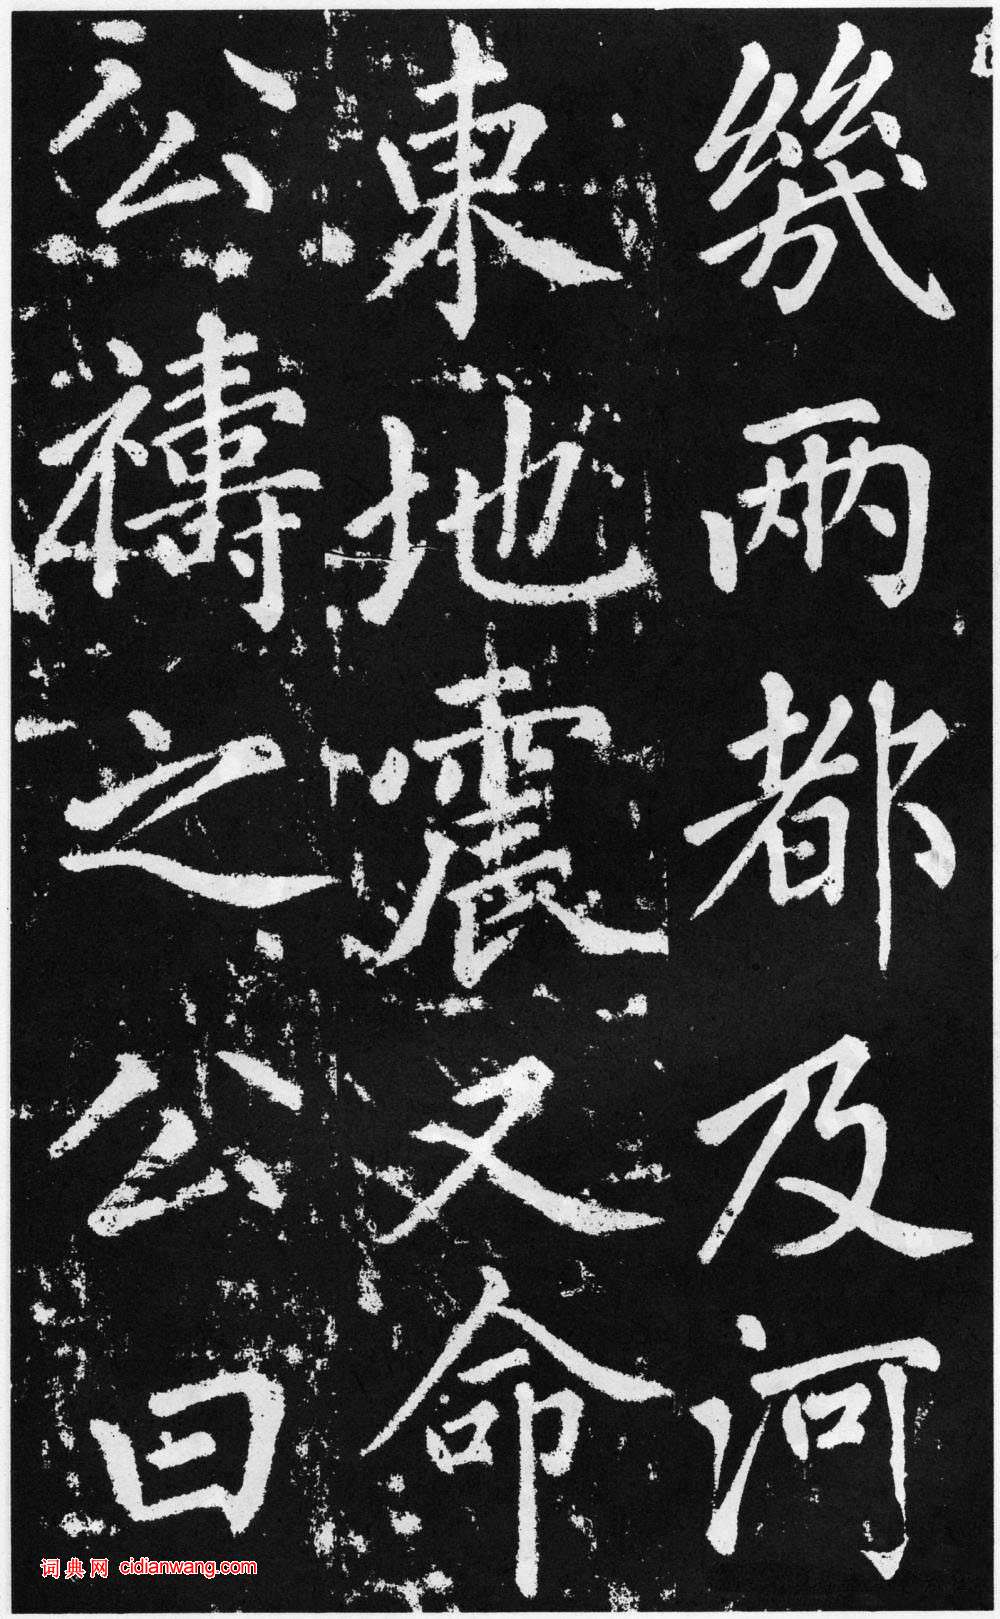 幾兩都及河
東地震又命
公禱之公曰
词典网 cidianwang.com